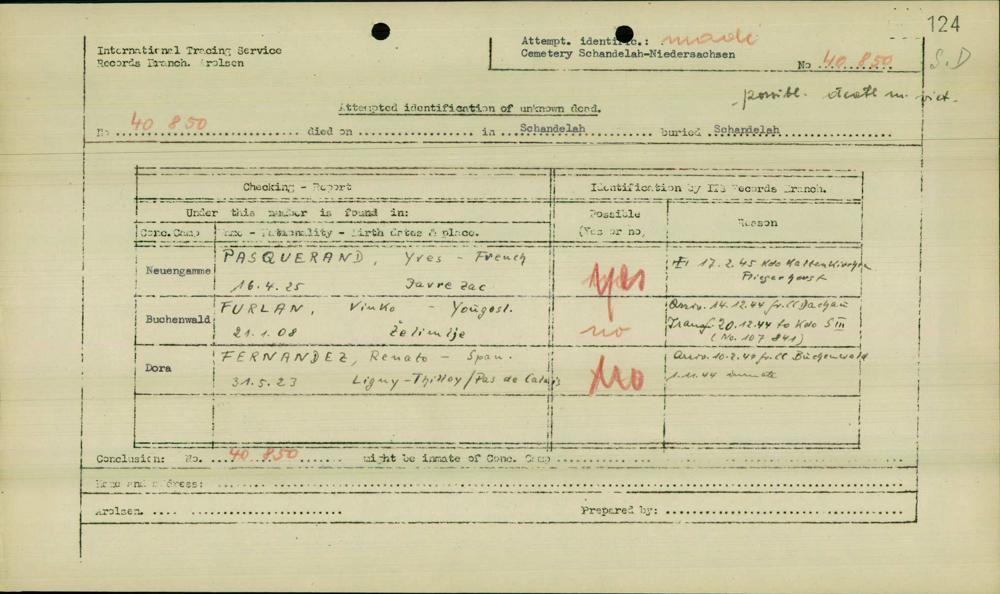 124
International Tracing Service
Records Branch. Arolsen
Attempt. identific.: made
Cemetery Schandelah-Niedersachsen
No 40 850
S.D
possibl. death m. vict.
Attempted identification of unknown dead.
No 40 850 died on in Schandelah buried Schandelah
Checking - Report
Identification by ITS Records Branch.
Under this number is found in:
Possible
(Yes or no)
Reason
Conc. Camp
Name - Nationality - Birth dates & place.
Neuengamme
PASQUERAND, Yves - French
16.4.25 Javrezac
yes
17.2.45 Kdo Kaltenkirchen
Fliegerhorst
Buchenwald
FURLAN, Vinko - Yougosl.
21.1.08 Želimlje
no
Arriv. 14.12.44 fr. CC Dachau
Transf. 20.12.44 to Kdo S III
(No. 107 841)
Dora
FERNANDEZ, Renato - Span.
31.5.23 Ligny-Thilloy/Pas de Calais
no
Arriv. 10.2.44 fr. CC Buchenwald
1.11.44 inmate
Conclusion: No. 40 850 might be inmate of Conc. Camp
Name and address:
Arolsen.
Prepared by: